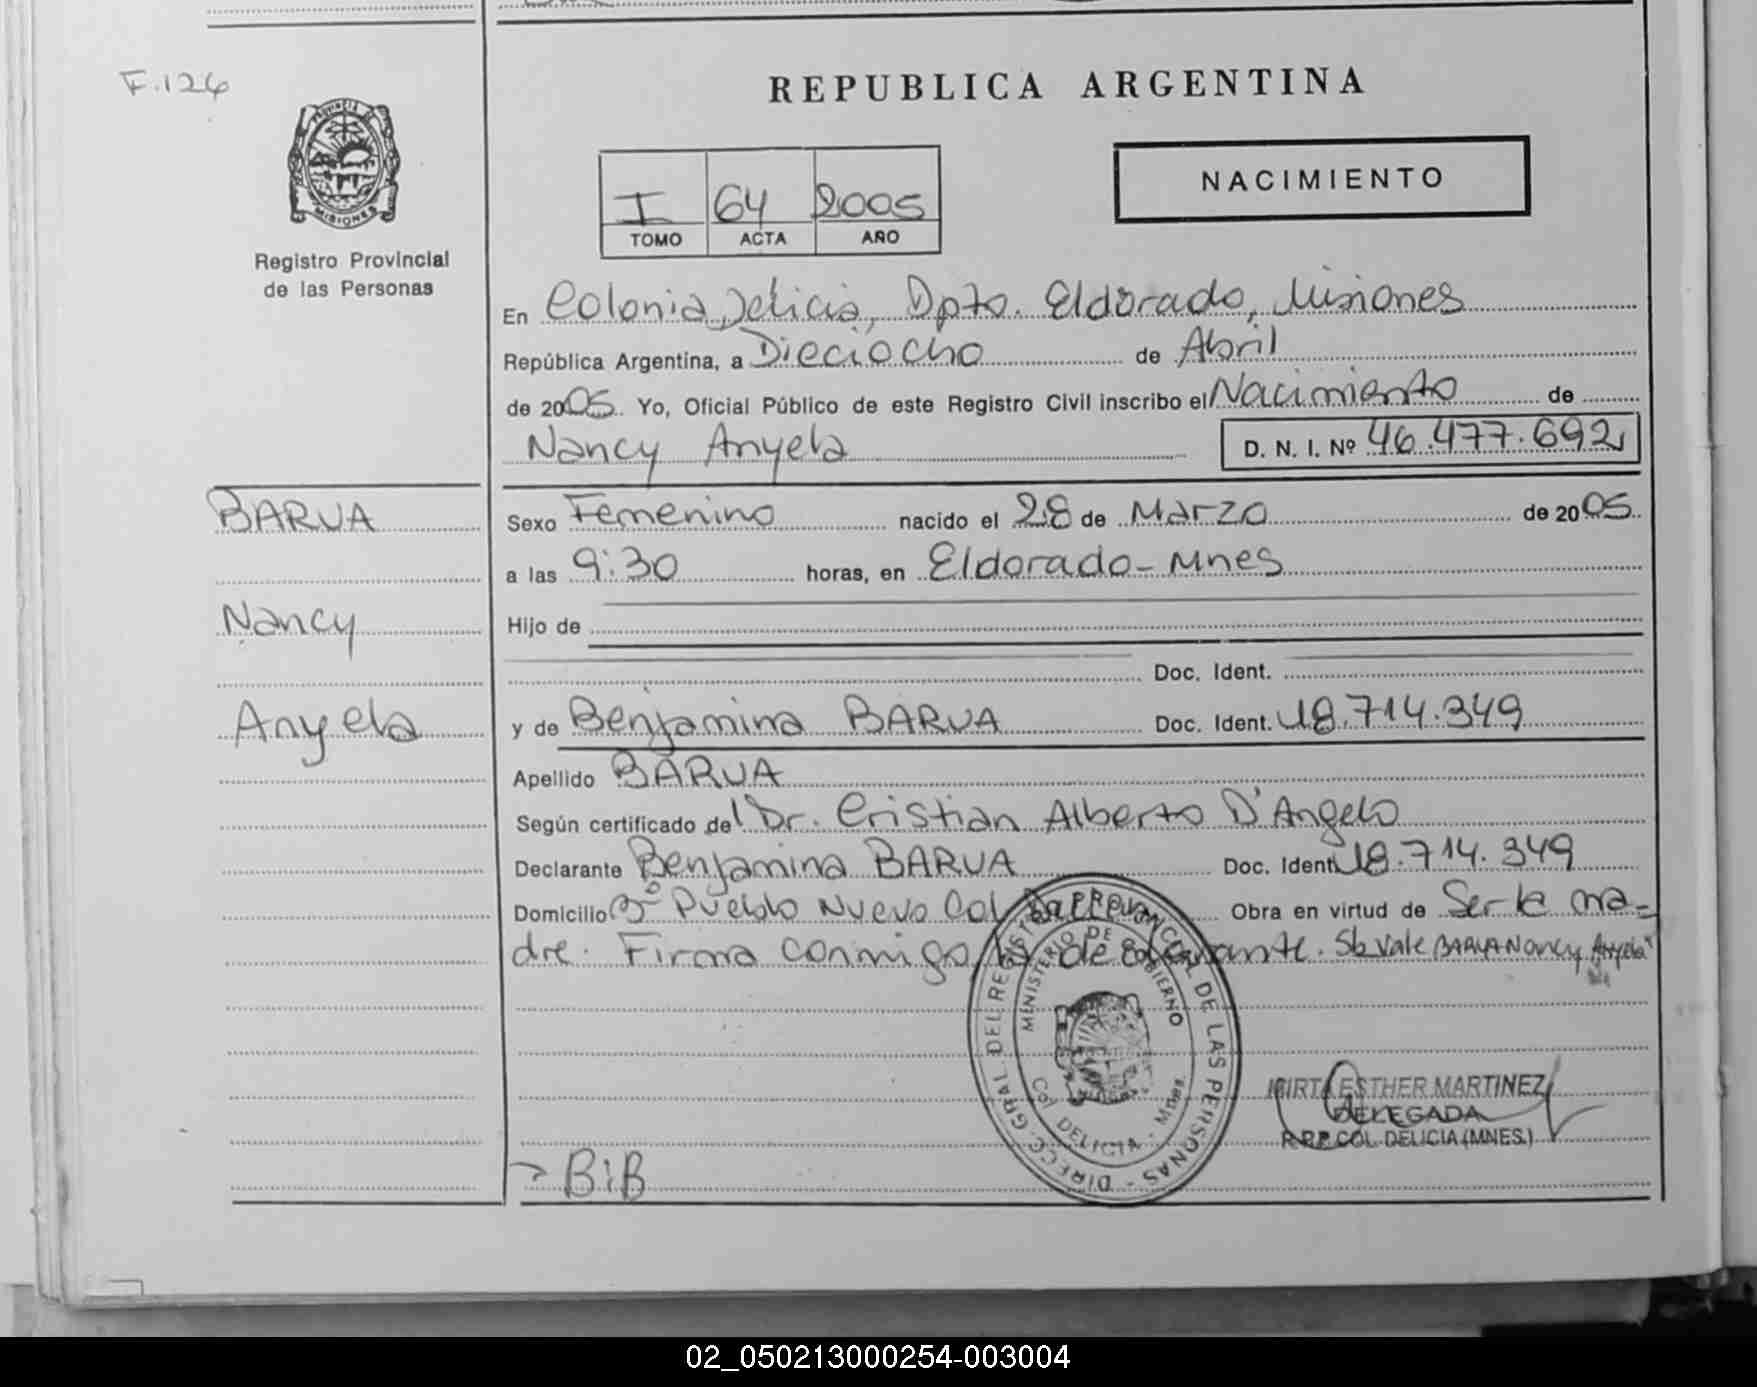 F.124
REPUBLICA ARGENTINA
PROVINCIA DE
MISIONES
Registro Provincial
de las Personas
I 64 2005
TOMO ACTA AÑO
NACIMIENTO
En Colonia Delicia, Dpto. Eldorado, Misiones
República Argentina, a Dieciocho de Abril
de 2005 Yo, Oficial Público de este Registro Civil inscribo el Nacimiento de
Nancy Anyela D. N. I. Nº 46.477.692
BARUA
Nancy
Anyela
Sexo Femenino nacido el 28 de Marzo de 2005
a las 9:30 horas, en Eldorado-Mnes
Hijo de
Doc. Ident.
y de Benjamina BARUA Doc. Ident. 18.714.349
Apellido BARUA
Según certificado del Dr. Cristian Alberto D'Angelo
Declarante Benjamina BARUA Doc. Ident 18.714.349
Domicilio Bº Pueblo Nuevo Col Obra en virtud de Ser la ma-
dre. Firma conmigo Vale BARUA Nancy Anyela
DIRECC. GRAL DEL REGISTRO PROVINCIAL DE LAS PERSONAS
MINISTERIO DE GOBIERNO
Col DELICIA - Mnes.
MIRTA ESTHER MARTINEZ
DELEGADA
R.P.P. COL. DELICIA (MNES.)
→ BiB
02_050213000254-003004